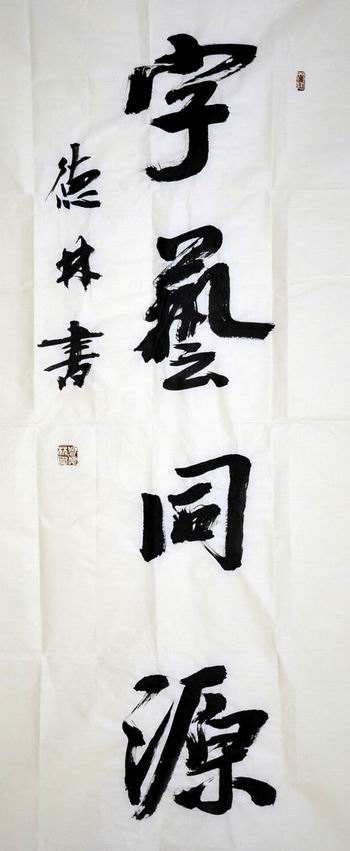 字藝同源
德林書